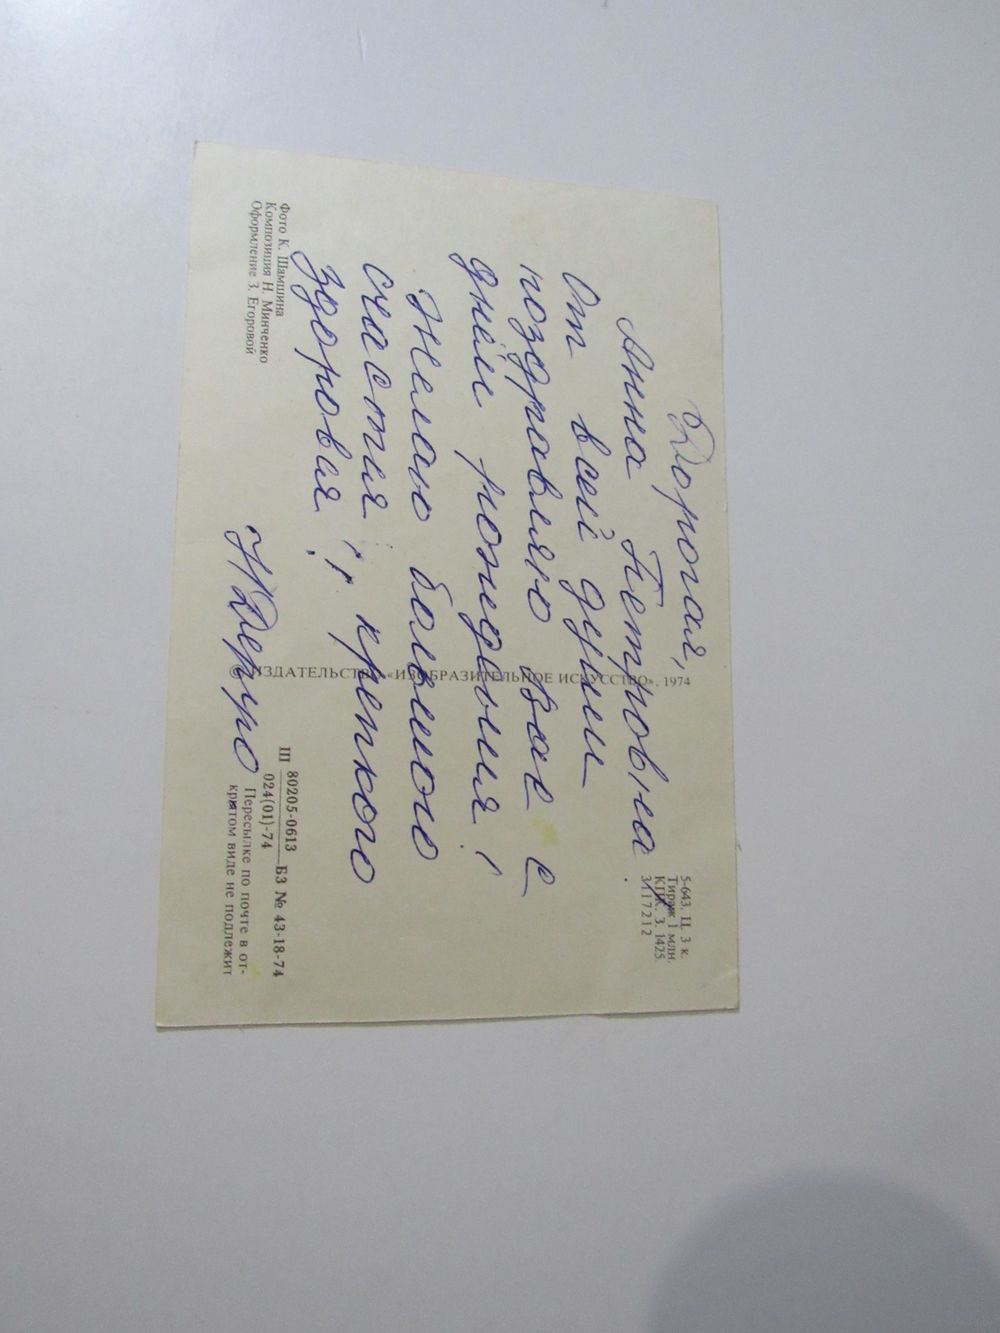 Дорогая,
Анна Петровна.
От всей души
поздравляю Вас с
днем рождения!
Желаю большого
счастия, крепкого
здоровья!
Фото К. Шамшина
Композиция Н. Минченко
Оформление З. Егоровой
© ИЗДАТЕЛЬСТВО «ИЗОБРАЗИТЕЛЬНОЕ ИСКУССТВО», 1974
5-643. Ц. 3 к.
Тираж 1 млн.
КПК. З. 1425.
3117212
Ш 80205-0613 БЗ № 43-18-74
024(01)-74
Пересылке по почте в от-
крытом виде не подлежит